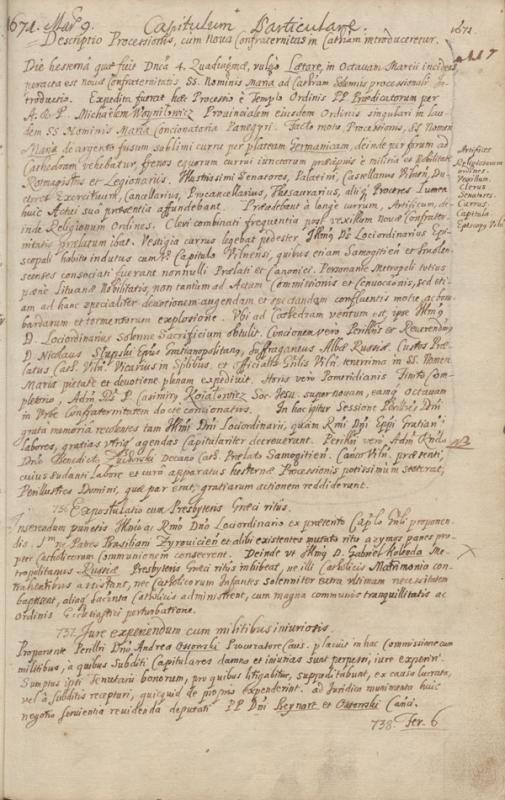 1671. Mar. 9. Capitulum Particulare. 1671.
Descriptio Processionis, cum Nova Confraternitas in Cathram introduceretur.
Die hesterna quae fuit Dnca 4. Quadragmae, vulgo Laetare, in Octavam Martii incidens,
peracta est novae Confraternitatis SS. Nominis Maria ad Cathram solemnis processionalis In-
troductio. Expedita fuerat haec Processio è Templo Ordinis PP. Praedicatorum per
A. R. P. Michaelem Woynilowicz Provincialem eiusdem Ordinis singulari in lau-
dem SS Nominis Maria Concionatoria Panegyri. Facto motu Processionis, SS. Nomen
Maria de argento fusum sublimi curru per plateam Germanicam, deinde per forum ad
Cathedram vehebatur, frenos equorum currui iunctorum è militia et Nobilitate
Rotmagistris et Legionarius. Illustrissimi Senatores, Palatini, Castellanus Vilnen, Du-
ctores Exercituum, Cancellarius, Procancellarius, Thesaurarius, aliiq Proceres Lumen
huic Actui sua praesentia affundebant. Praeibant à longe currum, Artificum, de-
inde Religionum Ordines. Cleri combinati frequentia post vexillum Novae Confrater-
nitatis praelatum ibat. Vestigia currus legebat pedester Illmq Ds Lociordinarius Epi-
scopali habitu indutus cum Vr Capitulo Vilnensi, quibus etiam Samogitien et Smolen-
scenses consociati fuerant nonnulli Praelati et Canonici. Personante Metropoli totius
paene Lituanae Nobilitatis, non tantum ad Actum Commissionis et Convocationis, sed eti-
am ad hanc specialiter devotionem augendam et spectandam confluentis motu, ac bom-
bardarum et tormentorum explosione. Ubi ad Cathedram ventum est, ipse Illmq
D. Lociordinarius Solenne Sacrificium obtulit. Concionem vero Perillris et Reverendiss
D. Nicolaus Slupski Epus Gratianopolitanus, Suffraganeus Albae Russiae, Custos Prae-
latus Cath. Viln. Vicarius in Splibus, et officialis Gnlis Viln. tenerrima in SS. Nomen
Maria pietate et devotione plenam expedivit. Horis vero Pomeridianis finito Com-
pletorio, Adm. Rds P. Casimirus Koialowicz Soc. Jesu. super novam, eamq Octavam
in Urbe Confraternitatem docte concionatus. In hac igitur Sessione Perillres Dni
grata memoria recolentes tam Illmi Dni Lociordinarii, quam Rmi Dni Eppi Gratiani
labores, gratias utrisq agendas Capitulariter decreverunt. Perillri vero Adm Rndo
Dno Benedicto Zuchorski Decano Cath. Praelato Samogitien. Canco Viln. praesenti,
cuius sudanti labore et cura apparatus hesternae Processionis potissimum steterat,
Perillustres Domini, quae par erat, gratiarum actionem reddiderunt.
736. Expostulatio cum Presbyteris Graeci ritus.
Inserendum punctis Illmo ac Rmo Dno Lociordinario ex praesento Caplo Gnli proponen-
dis. 1mo ne Patres Basiliani Zyrovicien et alibi existentes mutato ritu azymos panes pro-
pter Catholicorum Communionem consecrent. Deinde ut Illmq D. Gabriel Kolenda Me-
tropolitanus Russiae Presbyteris Graeci ritus inhibeat, ne illi Catholicis Matrimonia con-
trahentibus assistant, nec Catholicorum Infantes solemniter extra ultimam necessitatem
baptizent, aliaq Sacramta Catholicis administrent, cum magna communis tranquillitatis ac
ordinis Ecclesiastici perturbatione.
737. Jure experiendum cum militibus iniuriosis.
Proponente Perillri Dno Andrea Ossowski Procuratore Caus. placuit in hac Commissione cum
militibus, a quibus Subditi Capitulares damna et iniurias sunt perpessi, iure experiri.
Sumptus ipsi Tenutarii bonorum, pro quibus litigabitur, suppeditabunt, ex causa lucrata,
vel à Subditis recepturi, quicquid de propriis expenderint. ad Juridica munimenta huic
negotio servientia revidenda deputati PP. Dni Reynart et Ossowski Canci.
738. Fer. 6
Artifices
Religiosorum
ordines.
Vexillum.
Clerus
Senatores.
Currus.
Capitula
Episcopus Viln.
NB